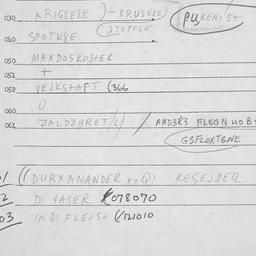 030 KRIGSELE )-KRUSKE) PUKENIST
(STEFELE
040 SPOTKSE
050 MAXDOSKOSTER
051 +
052 VELKSTAFT (366
060 U
061 ZALDZBRET/2) / AAD3R3 FLEGNHOB
G3FLOXT3NE
1 ((DURXANANDER xxQ) KESEJDER
2 DI VASER 078070
03 INDIFLEIST (/121010